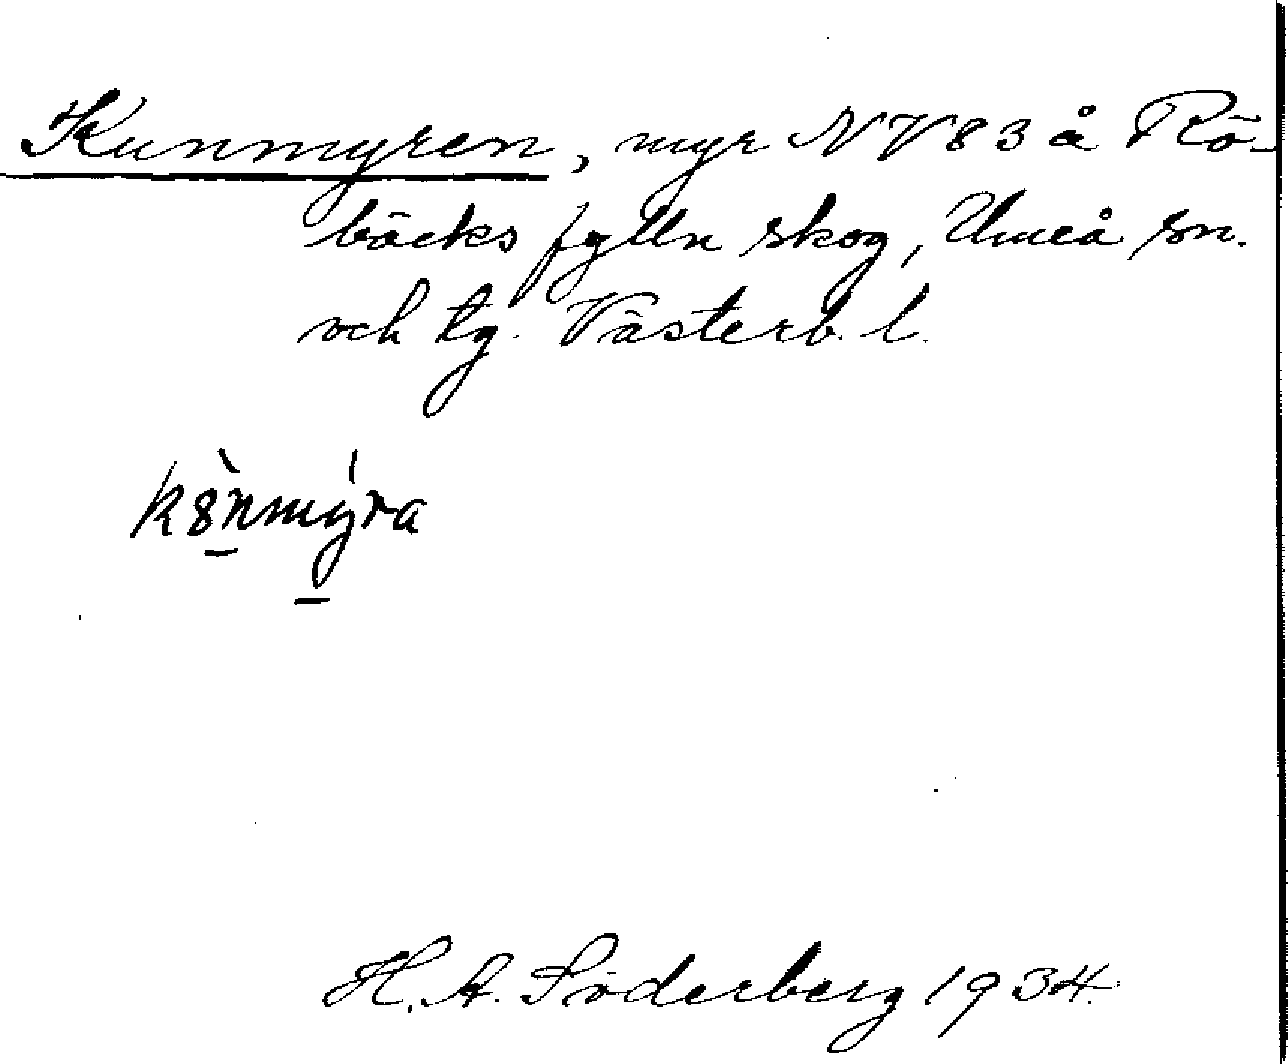 Kunmyren, myr NV83 å Rö-
bäcks fylln skog, Umeå sn.
och tg. Västerb. l.
k8̀nmýra
H. A. Söderberg 1934.